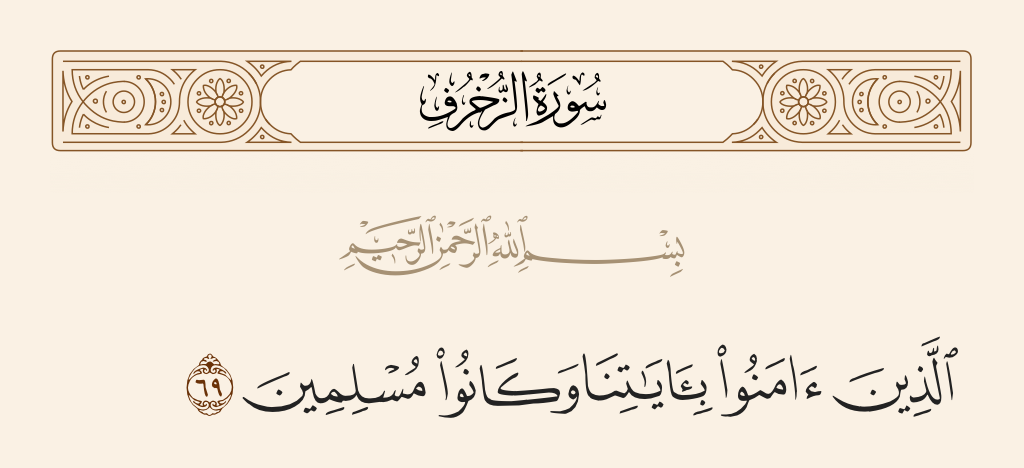 سُورَةُ الزُّخْرُفِ
بِسْمِ ٱللَّهِ ٱلرَّحْمَٰنِ ٱلرَّحِيمِ
ٱلَّذِينَ ءَامَنُوا۟ بِـَٔايَـٰتِنَا وَكَانُوا۟ مُسْلِمِينَ ٦٩